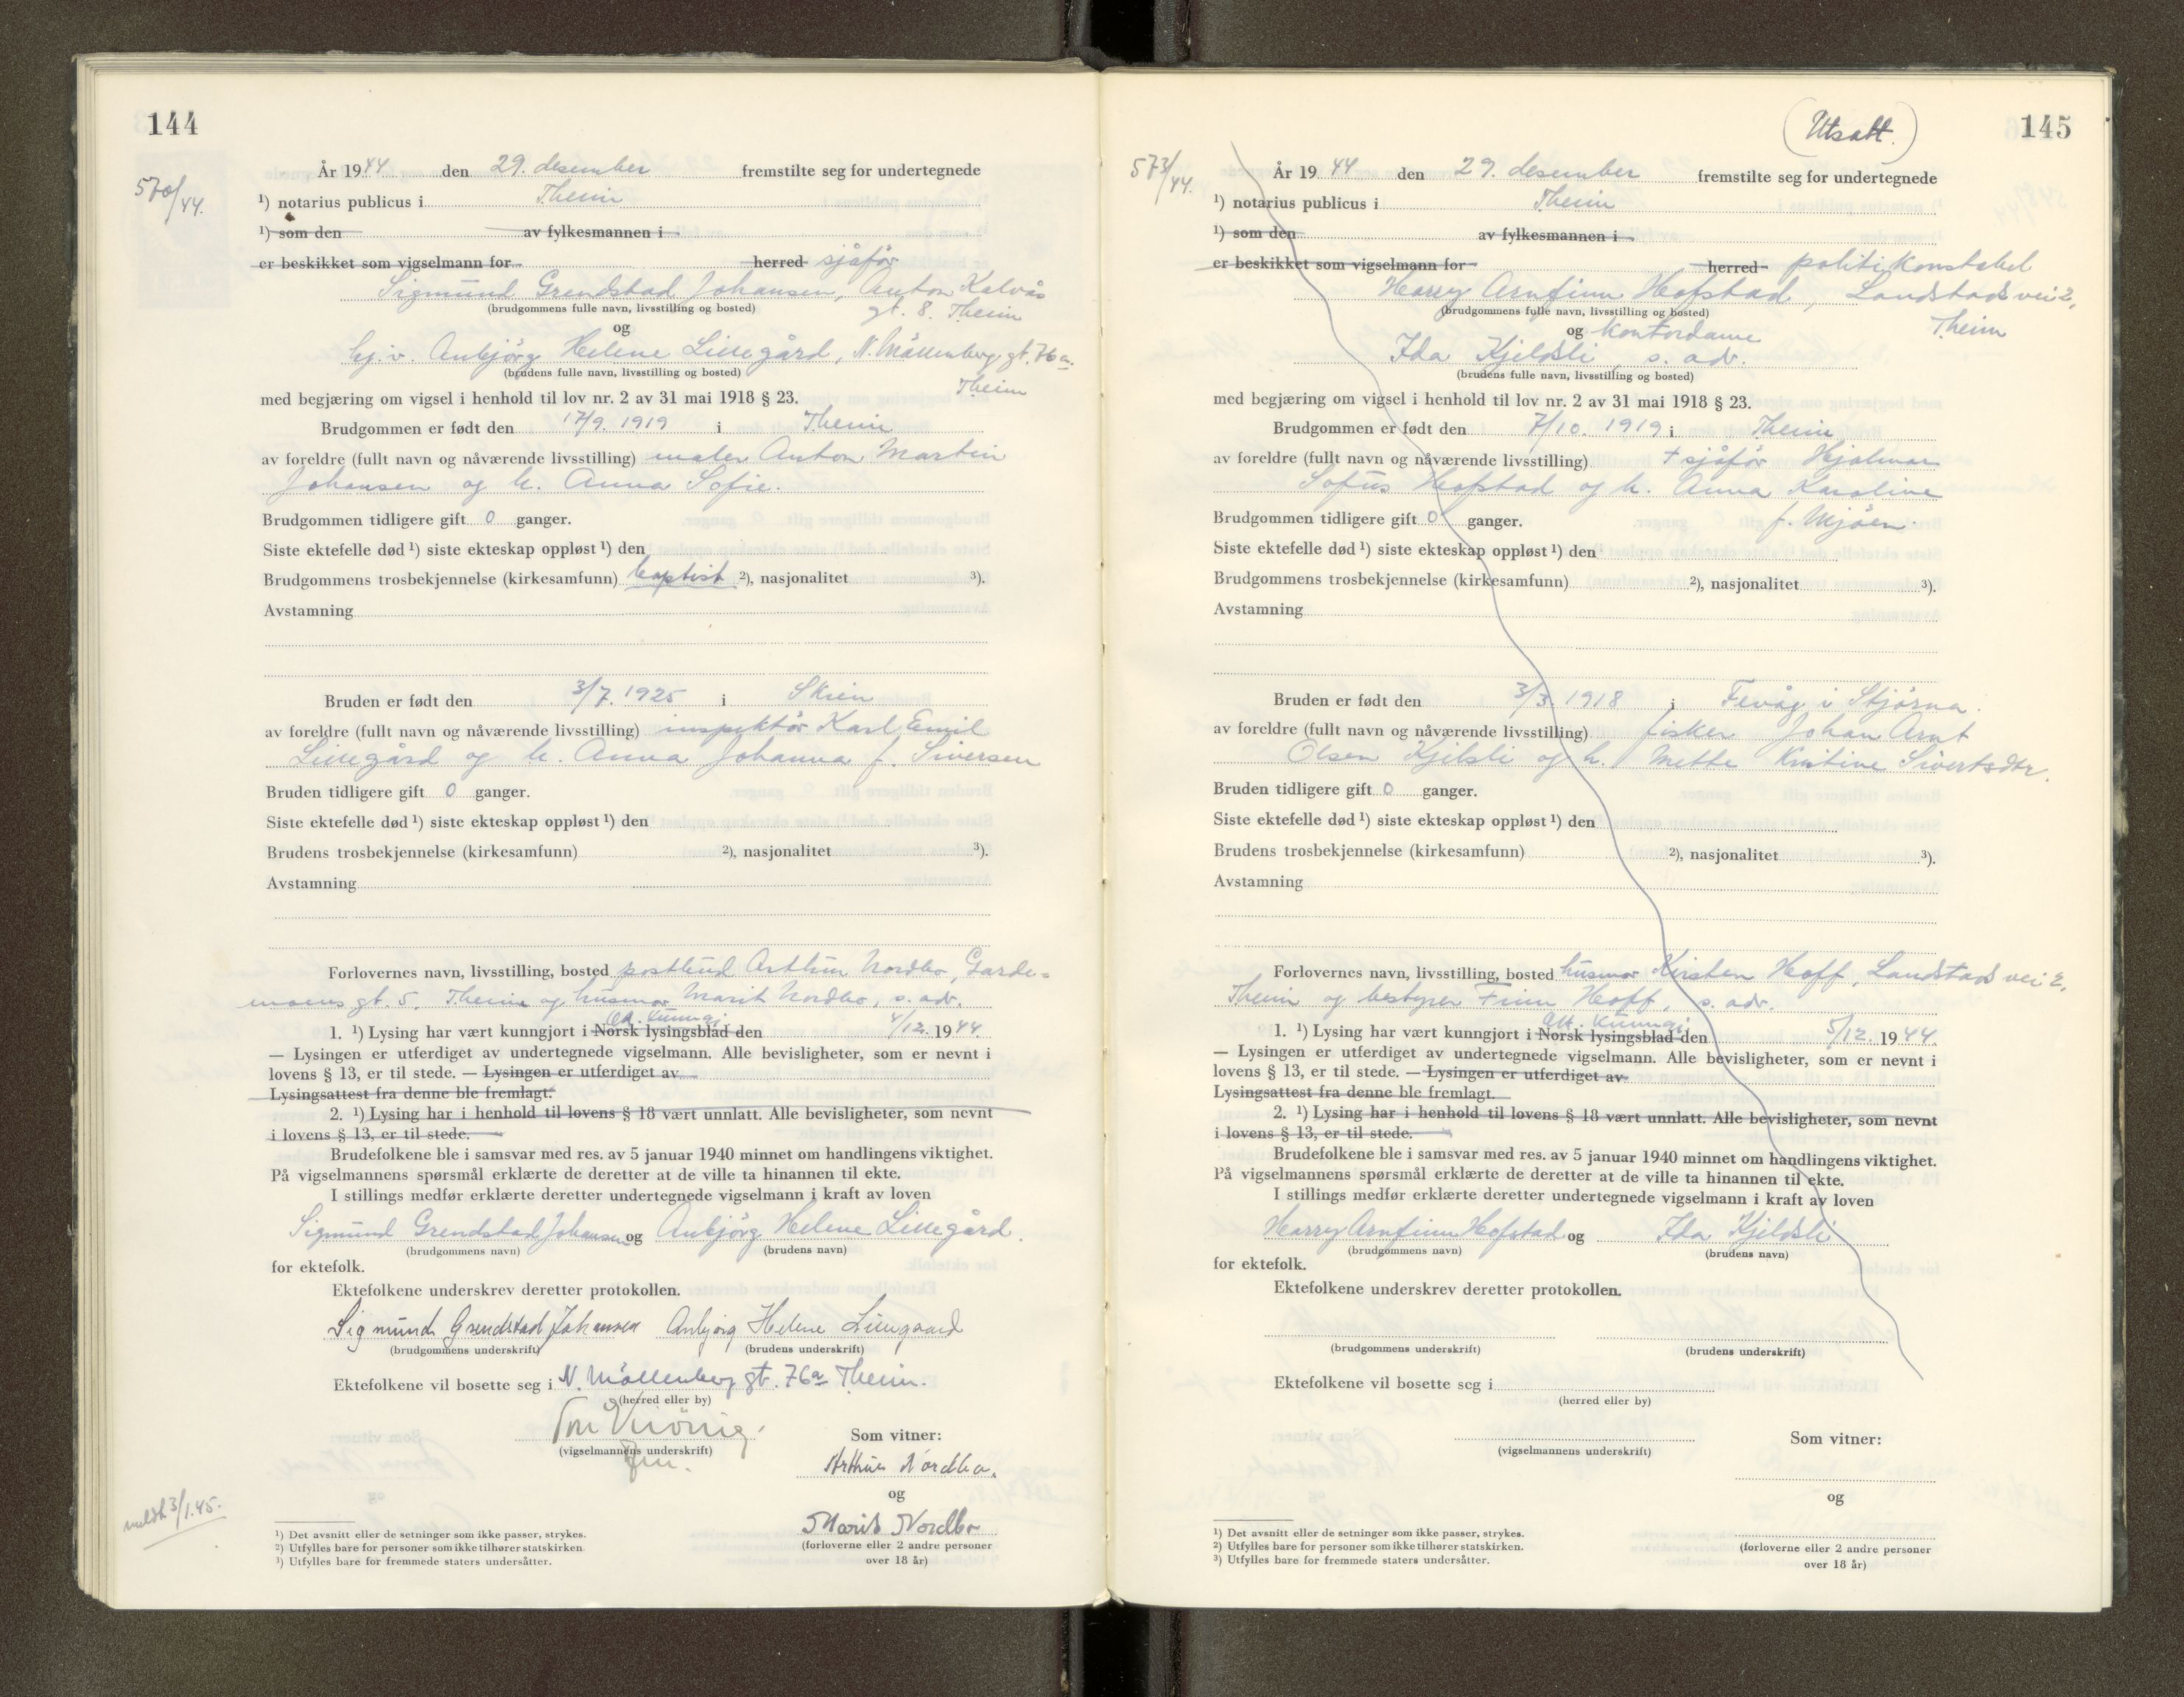 144
570/44.
År 1944 den 29. desember fremstilte seg for undertegnede
¹) notarius publicus i Theim
¹) som den av fylkesmannen i
er beskikket som vigselmann for herred sjåfør
Sigmund Grendstad Johansen, Anton Kalvås
(brudgommens fulle navn, livsstilling og bosted) gt. 8. Theim
og
hj.v. Anbjörg Helene Lillegård, N. Möllenberg gt. 76a.
(brudens fulle navn, livsstilling og bosted) Theim
med begjæring om vigsel i henhold til lov nr. 2 av 31 mai 1918 § 23.
Brudgommen er født den 17/9. 1919 i Theim
av foreldre (fullt navn og nåværende livsstilling) maler Anton Martin
Johansen og h. Anna Sofie.
Brudgommen tidligere gift 0 ganger.
Siste ektefelle død ¹) siste ekteskap oppløst ¹) den
Brudgommens trosbekjennelse (kirkesamfunn) baptist ²), nasjonalitet ³).
Avstamning
Bruden er født den 3/7. 1925 i Skien
av foreldre (fullt navn og nåværende livsstilling) inspektör Karl Emil
Lillegård og h. Anna Johanna f. Siversen
Bruden tidligere gift 0 ganger.
Siste ektefelle død ¹) siste ekteskap oppløst ¹) den
Brudens trosbekjennelse (kirkesamfunn) ²), nasjonalitet ³).
Avstamning
Forlovernes navn, livsstilling, bosted postbud Arthur Nordbo, Garde-
moens gt. 5, Theim og husmor Marit Nordbo, s. adr.
1. ¹) Lysing har vært kunngjort i Norsk lysingsblad den 4/12. 1944.
— Lysingen er utferdiget av undertegnede vigselmann. Alle bevisligheter, som er nevnt i
lovens § 13, er til stede. — Lysingen er utferdiget av
Lysingsattest fra denne ble fremlagt.
2. ¹) Lysing har i henhold til lovens § 18 vært unnlatt. Alle bevisligheter, som nevnt
i lovens § 13, er til stede.
Brudefolkene ble i samsvar med res. av 5 januar 1940 minnet om handlingens viktighet.
På vigselmannens spørsmål erklærte de deretter at de ville ta hinannen til ekte.
I stillings medfør erklærte deretter undertegnede vigselmann i kraft av loven
Sigmund Grendstad Johansen og Anbjörg Helene Lillegård.
(brudgommens navn) (brudens navn)
for ektefolk.
Ektefolkene underskrev deretter protokollen.
Sigmund Grendstad Johansen Anbjørg Helene Lillegaard
(brudgommens underskrift) (brudens underskrift)
Ektefolkene vil bosette seg i N. Möllenberg gt. 76a Theim.
(herred eller by)
(vigselmannens underskrift)
Som vitner:
Arthur Nordbo.
og
Marit Nordbo
(forloverne eller 2 andre personer
over 18 år)
meldt 3/1.45.
¹) Det avsnitt eller de setninger som ikke passer, strykes.
²) Utfylles bare for personer som ikke tilhører statskirken.
³) Utfylles bare for fremmede staters undersåtter.
(Utsatt.)
145
573/44.
År 1944 den 29. desember fremstilte seg for undertegnede
¹) notarius publicus i Theim
¹) som den av fylkesmannen i
er beskikket som vigselmann for herred politikonstabel
Harry Arnfinn Hofstad, Landstads vei 2,
(brudgommens fulle navn, livsstilling og bosted) Theim
og kontordame
Ida Kjeldsli s. adr.
(brudens fulle navn, livsstilling og bosted)
med begjæring om vigsel i henhold til lov nr. 2 av 31 mai 1918 § 23.
Brudgommen er født den 7/10. 1919 i Theim
av foreldre (fullt navn og nåværende livsstilling) + sjåför Hjalmar
Sofus Hofstad og h. Anna Karoline
Brudgommen tidligere gift 0 ganger. f. Mjöen.
Siste ektefelle død ¹) siste ekteskap oppløst ¹) den
Brudgommens trosbekjennelse (kirkesamfunn) ²), nasjonalitet ³).
Avstamning
Bruden er født den 3/3. 1918 i Fevåg i Stjörna.
av foreldre (fullt navn og nåværende livsstilling) fisker Johan Arnt
Olsen Kjelsli og h. Mette Kristine Sivertsdtr.
Bruden tidligere gift 0 ganger.
Siste ektefelle død ¹) siste ekteskap oppløst ¹) den
Brudens trosbekjennelse (kirkesamfunn) ²), nasjonalitet ³).
Avstamning
Forlovernes navn, livsstilling, bosted husmor Kirsten Hoff, Landstads vei 2,
Theim og bestyrer Finn Hoff, s. adr.
1. ¹) Lysing har vært kunngjort i Norsk lysingsblad den 5/12. 1944.
— Lysingen er utferdiget av undertegnede vigselmann. Alle bevisligheter, som er nevnt i
lovens § 13, er til stede. — Lysingen er utferdiget av
Lysingsattest fra denne ble fremlagt.
2. ¹) Lysing har i henhold til lovens § 18 vært unnlatt. Alle bevisligheter, som nevnt
i lovens § 13, er til stede.
Brudefolkene ble i samsvar med res. av 5 januar 1940 minnet om handlingens viktighet.
På vigselmannens spørsmål erklærte de deretter at de ville ta hinannen til ekte.
I stillings medfør erklærte deretter undertegnede vigselmann i kraft av loven
Harry Arnfinn Hofstad og Ida Kjeldsli
(brudgommens navn) (brudens navn)
for ektefolk.
Ektefolkene underskrev deretter protokollen.
(brudgommens underskrift) (brudens underskrift)
Ektefolkene vil bosette seg i
(herred eller by)
(vigselmannens underskrift)
Som vitner:
og
(forloverne eller 2 andre personer
over 18 år)
¹) Det avsnitt eller de setninger som ikke passer, strykes.
²) Utfylles bare for personer som ikke tilhører statskirken.
³) Utfylles bare for fremmede staters undersåtter.